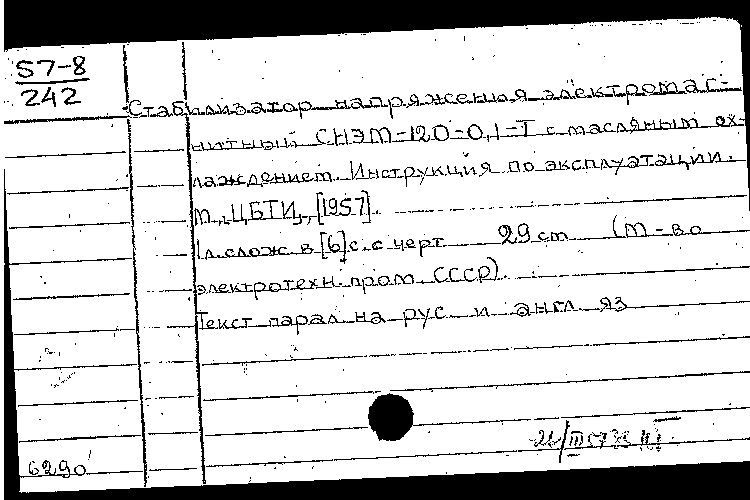 57-8
242
Стабилизатор напряжения электромаг-
нитный СНЭМ-120-0,1-Т с масляным ох-
лаждением. Инструкция по эксплуатации.
М., ЦБТИ, [1957].
1л. слож. в [6]с. с черт. 29 см (М-во
электротехн. пром. СССР).
Текст парал. на рус. и англ. яз.
6290